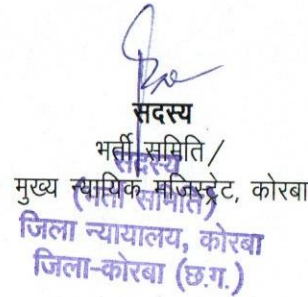 सदस्य
भर्ती समिति/
सदस्य
मुख्य न्यायिक मजिस्ट्रेट, कोरबा
(भर्ती समिति)
जिला न्यायालय, कोरबा
जिला-कोरबा (छ.ग.)